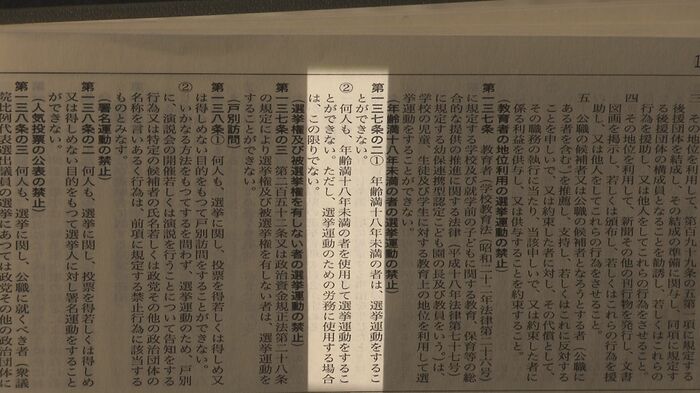 1
三　その地位を利用して、第百九十九条の五第一項に規定する
後援団体を結成し、その結成の準備に関与し、同項に規定す
る後援団体の構成員となることを勧誘し、若しくはこれらの
行為を援助し、又は他人をしてこれらの行為をさせること。
四　その地位を利用して、新聞その他の刊行物を発行し、文書
図画を掲示し、若しくは頒布し、若しくはこれらの行為を援
助し、又は他人をしてこれらの行為をさせること。
五　公職の候補者又は公職の候補者となろうとする者（公職に
ある者を含む。）を推薦し、支持し、若しくはこれに反対する
ことを申しいで、又は約束した者に対し、その代償として、
その職務の執行に当たり、当該申しいで、又は約束した者に
係る利益を供与し、又は供与することを約束すること。
（教育者の地位利用の選挙運動の禁止）
第一三七条　教育者（学校教育法（昭和二十二年法律第二十六号）
に規定する学校及び就学前の子どもに関する教育、保育等の総
合的な提供の推進に関する法律（平成十八年法律第七十七号）
に規定する幼保連携型認定こども園の長及び教員をいう。）は、
学校の児童、生徒及び学生に対する教育上の地位を利用して選
挙運動をすることができない。
（年齢満十八年未満の者の選挙運動の禁止）
第一三七条の二①　年齢満十八年未満の者は、選挙運動をするこ
とができない。
②　何人も、年齢満十八年未満の者を使用して選挙運動をするこ
とができない。ただし、選挙運動のための労務に使用する場合
は、この限りでない。
（選挙権及び被選挙権を有しない者の選挙運動の禁止）
第一三七条の三　第二百五十二条又は政治資金規正法第二十八条
の規定により選挙権及び被選挙権を有しない者は、選挙運動を
することができない。
（戸別訪問）
第一三八条①　何人も、選挙に関し、投票を得若しくは得しめ又
は得しめない目的をもつて戸別訪問をすることができない。
②　いかなる方法をもつてするを問わず、選挙運動のため、戸別
に、演説会の開催若しくは演説を行うことについて告知をする
行為又は特定の候補者の氏名若しくは政党その他の政治団体の
名称を言いあるく行為は、前項に規定する禁止行為に該当する
ものとみなす。
（署名運動の禁止）
第一三八条の二　何人も、選挙に関し、投票を得若しくは得しめ
又は得しめない目的をもつて選挙人に対し署名運動をすること
ができない。
（人気投票の公表の禁止）
第一三八条の三　何人も、選挙に関し、公職に就くべき者（衆議
院比例代表選出議員の選挙にあつては政党その他の政治団体に